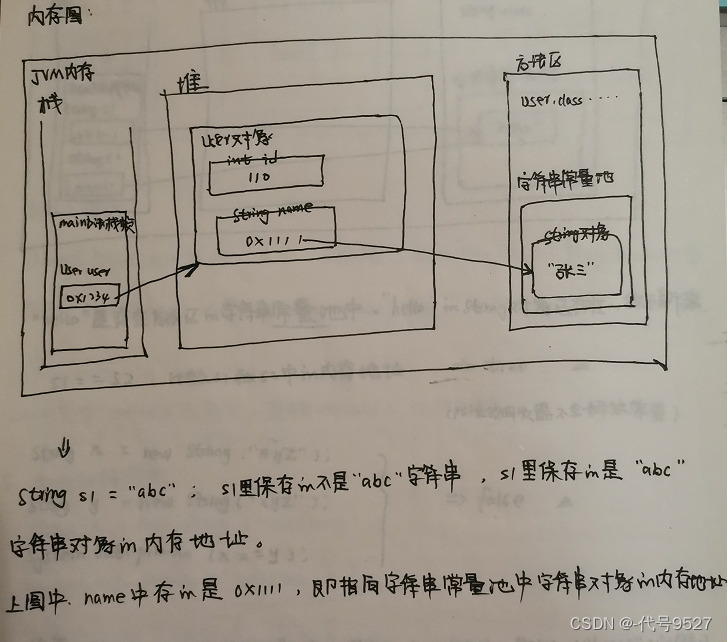 内存图:
JVM内存
栈
main方法栈帧
User user
0x1234
堆
User对象
int id
110
String name
0x1111
方法区
User.class ·····
字符串常量池
String对象
"张三"
String s1 = "abc"; s1里保存的不是"abc"字符串,s1里保存的是"abc"
字符串对象的内存地址。
上图中、name中存的是0x1111,即指向字符串常量池中字符串对象的内存地址
CSDN @-代号9527